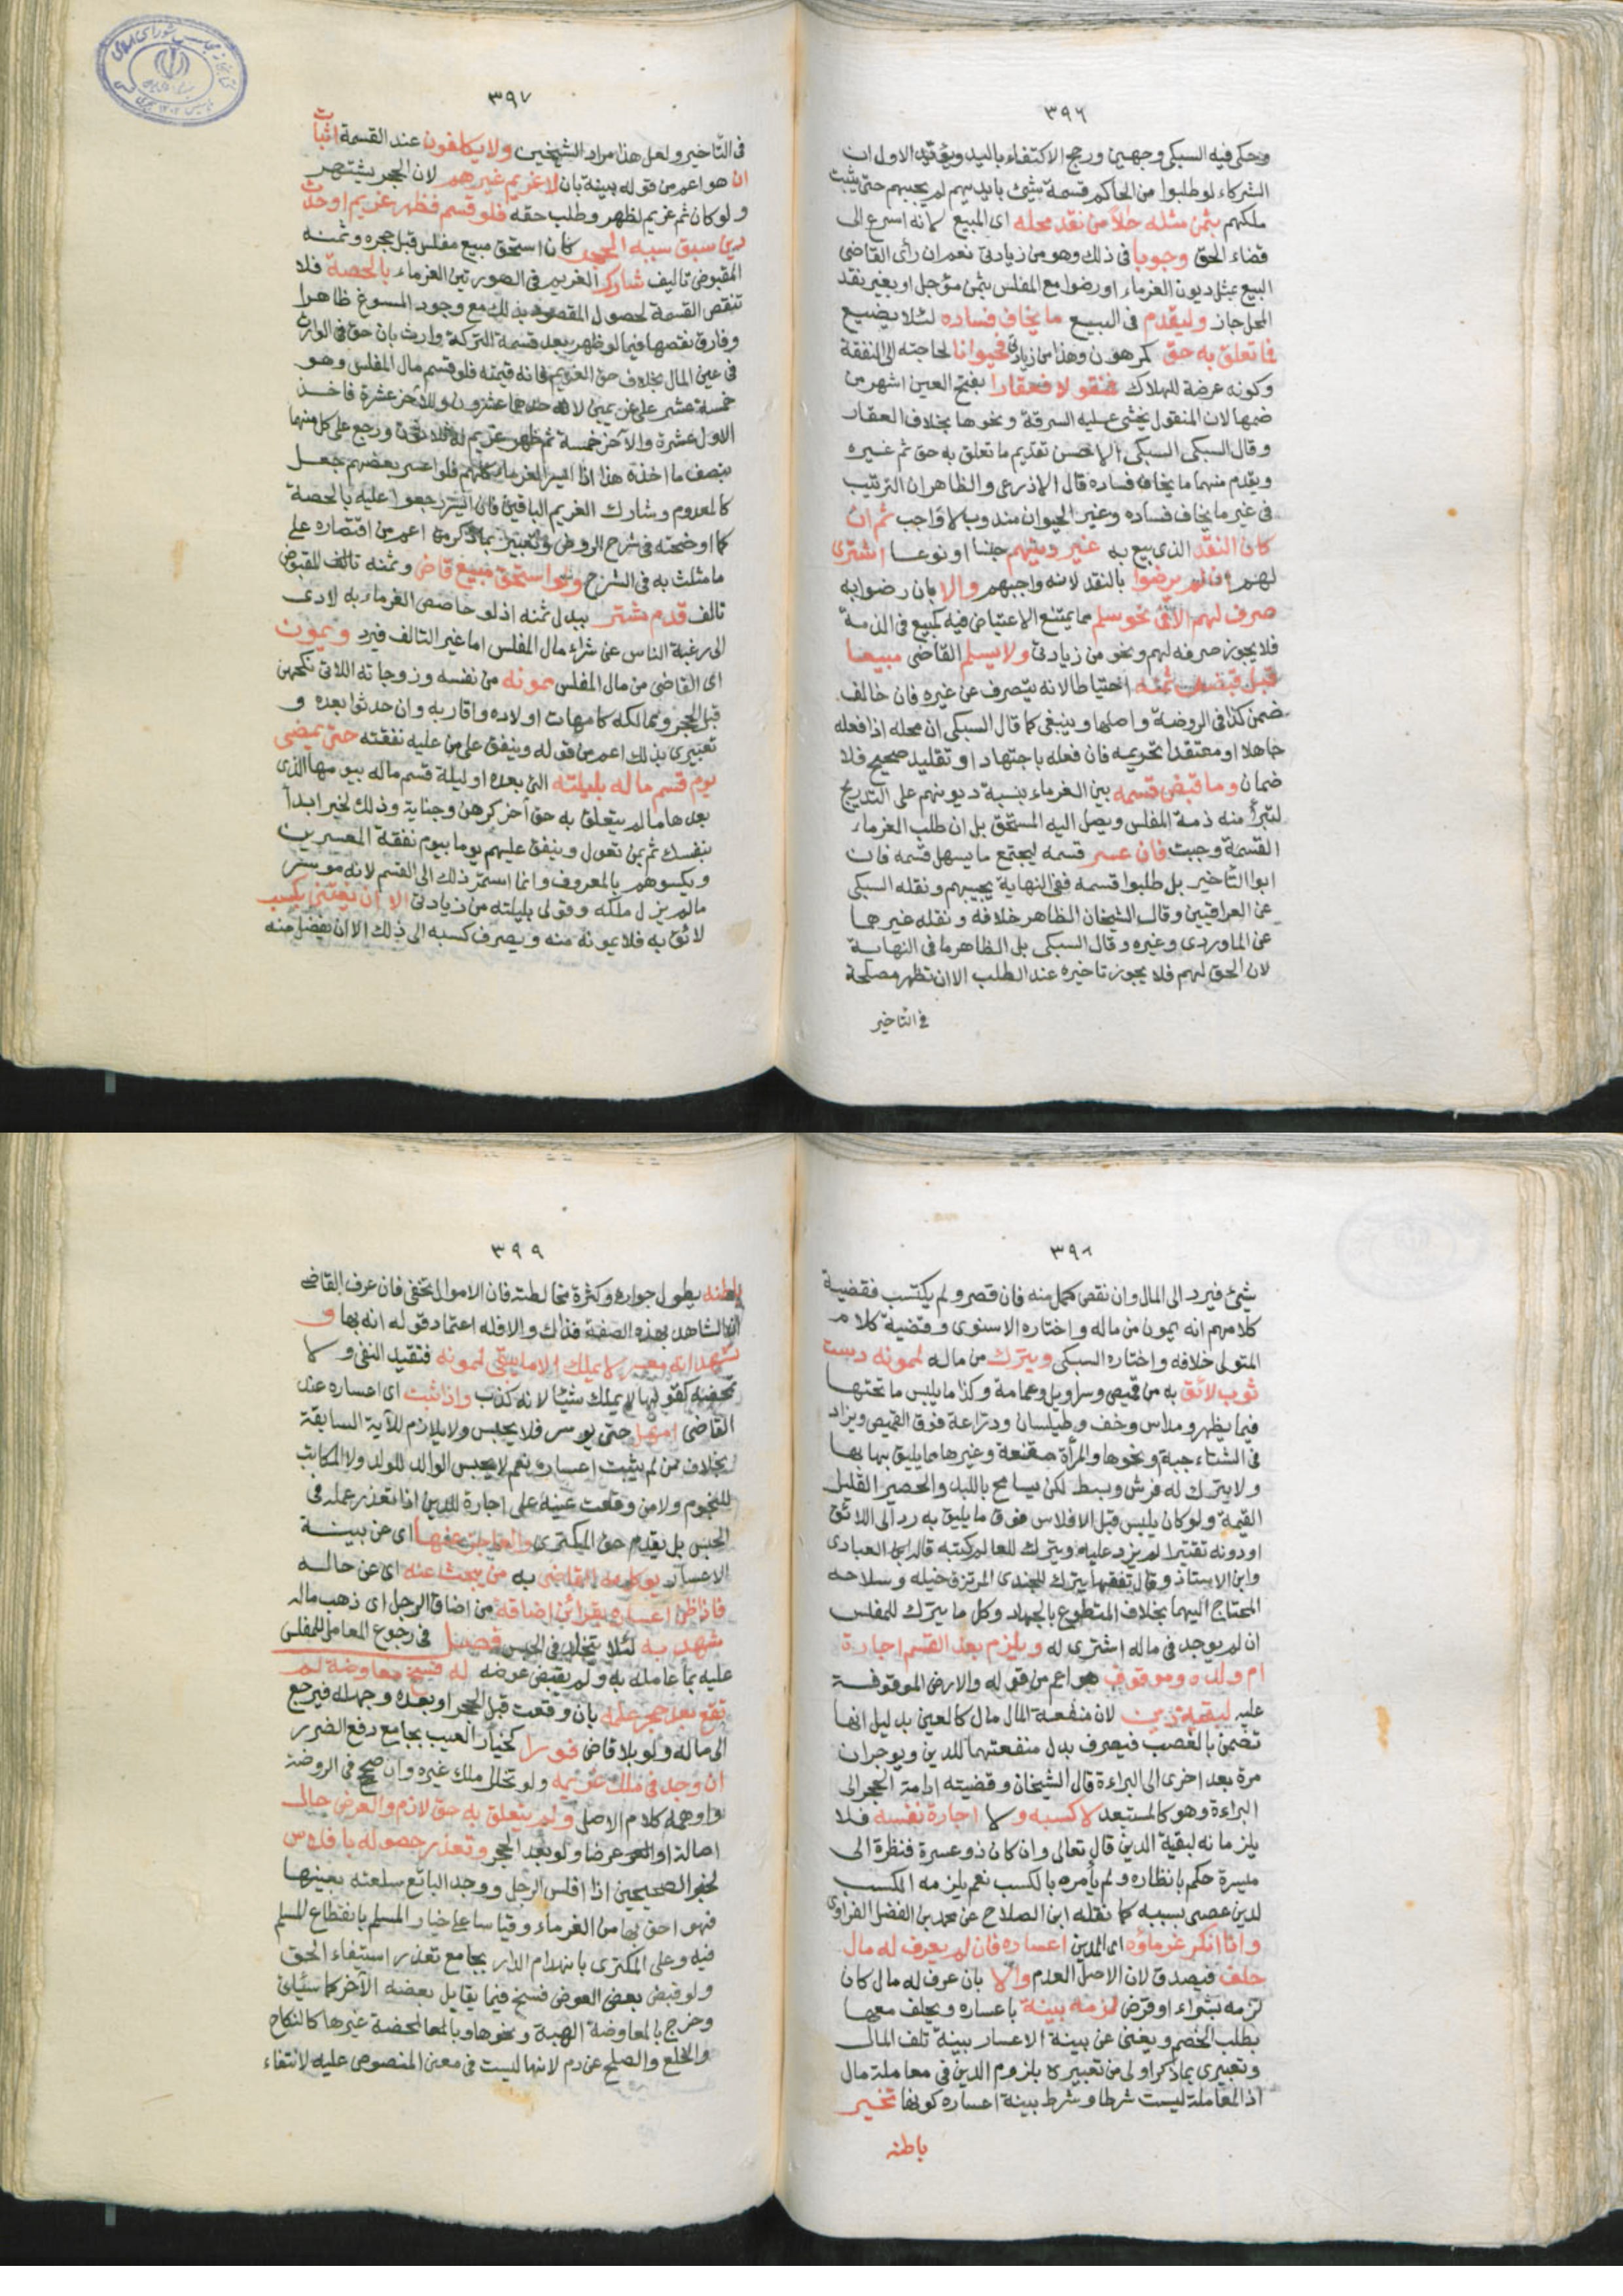 ٣٩٦
وحكى فيه السبكى وجهين ورجح الاكتفاء باليد الاول ان
الشركاء لو طلبوا من الحاكم قسمة شئ بايديهم لم يجبهم حتى يثبت
ملكهم بثمن مثله حالا من نقد محله اى المبيع لانه اسرع الى
قضاء الحق وجوبا فى ذلك وهو من زيادتى نعم ان رأى القاضى
البيع بمثل ديون الغرماء او رضوا مع المفلس بثمن مؤجل او بغير نقد
المحل جاز وليقدم فى البيع ما يخاف فساده لئلا يضيع
فما تعلق به حق كمرهون وهذا من زيادتى فحيوانا لحاجته الى النفقة
وكونه عرضة للهلاك فمنقولا فعقارا بفتح العين اشهر من
ضمها لان المنقول يخشى عليه السرقة ونحوها بخلاف العقار
وقال السبكى السبكى الاحسن تقديم ما تعلق به حق ثم غيره
ويقدم منهما ما يخاف فساده قال الاذرعى والظاهر ان الترتيب
فى غير ما يخاف فساده وغير الحيوان مندوب لا واجب ثم ان
كان النقد الذى بيع به غير دينهم جنسا او نوعا اشترى
لهم ان لم يرضوا بالنقد لانه واجبهم والا بان رضوا به
صرف لهم الا فى نحو سلم مما يمتنع الاعتياض فيه كمبيع فى الذمة
فلا يجوز صرفه لهم ونحو من زيادتى ولا يسلم القاضى مبيعا
قبل قبض ثمنه احتياطا لانه يتصرف عن غيره فان خالف
ضمن كذا فى الروضة واصلها وينبغى كما قال السبكى ان محله اذا فعله
جاهلا او معتقدا تحريمه فان فعله باجتهاد او تقليد صحيح فلا
ضمان وما قبض قسمه بين الغرماء بنسبة ديونهم على التدريج
لتبرأ منه ذمة المفلس ويصل اليه المستحق بل ان طلب الغرماء
القسمة وجبت فان عسر قسمه ليجتمع ما يسهل قسمه فان
ابوا التأخير بل طلبوا قسمه ففى النهاية يجيبهم ونقله السبكى
عن العراقيين وقال الشيخان الظاهر خلافه ونقله غيرهما
عن الماوردى وغيره وقال السبكى بل الظاهر ما فى النهاية
لان الحق لهم فلا يجوز تاخيره عند الطلب الا ان تظهر مصلحة
فى التأخير
٣٩٧
فى التأخير ولعل هذا مراد الشيخين ولا يكلفون عند القسمة اثبات
ان هو اعم من قوله بينة بان لا غريم غيرهم لان الحجر يشتهر
ولو كان ثم غريم لظهر وطلب حقه فلو قسم فظهر غريم او حدث
دين سبق سببه الحجر كان استحق مبيع مفلس قبل حجره وثمنه
المقبوض تالف شارك الغريم فى الصورتين الغرماء بالحصة فلا
تنقض القسمة لحصول المقصود بذلك مع وجود المسوغ ظاهرا
وفارق نقضها فيما لو ظهر بعد قسمة التركة وارث بان حق الوارث
فى عين المال بخلاف حق الغريم فانه قيمته فلو قسم مال المفلس وهو
خمسة عشر على غريمين لاحدهما عشرون وللآخر عشرة فاخذ
الاول عشرة والآخر خمسة ثم ظهر غريم له ثلاثون رجع على كل منهما
بنصف ما اخذه هذا اذا ايسر الغرماء كلهم فلو اعسر بعضهم جعل
كالمعدوم وشارك الغريم الباقين فان ايسر رجعوا عليه بالحصة
كما اوضحته فى شرح الروض وتعبيرى بما ذكر من اعم من اقتصاره على
ما مثلت به فى الشرح ولو استحق مبيع قاض وثمنه تالف المقبوض
تالف قدم مشتر ببدل ثمنه اذ لو حاصص الغرماء به لادى
الى رغبة الناس عن شراء مال المفلس اما غير التالف فيرد ويمون
اى القاضى من مال المفلس ممونه من نفسه وزوجاته اللاتى نكحهن
قبل الحجر ومماليكه كامهات اولاده واقاربه وان حدثوا بعده و
تعبيرى بذلك اعم من قوله وينفق على من عليه نفقته حتى يمضى
يوم قسم ماله بليلته التى بعده او ليلة قسم ماله بيومها الذى
بعدها ما لم يتعلق به حق آخر كرهن وجناية وذلك لخبر ابدأ
بنفسك ثم بمن تعول وينفق عليهم يوما بيوم نفقة المعسرين
ويكسوهم بالمعروف وانما استمر ذلك الى القسم لانه موسر
ما لم يزل ملكه وقولى بليلته من زيادتى الا ان يغتنى بكسب
لائق به فلا يمونه منه ويصرف كسبه الى ذلك الا ان يفضل منه
٣٩٨
شئ فيرد الى المال وان نقص كمل منه فان قصر ولم يكتسب فقضية
كلامهم انه يمون من ماله واختاره الاسنوى وقضية كلام
المتولى خلافه واختاره السبكى ويترك من ماله لممونه دست
ثوب لائق به من قميص وسراويل وعمامة وكذا ما يلبس ما تحتها
فيما يظهر ومداس وخف وطيلسان ودراعة فوق القميص ويزاد
فى الشتاء جبة ونحوها والمرأة مقنعة وغيرها مما يليق بها بها
ولا يترك له فرش وبسط لكن يسامح باللبد والحصير القليل
القيمة ولو كان يلبس قبل الافلاس فوق ما يليق به رد الى اللائق
او دونه تقتيرا لم يزد عليه ويترك للعالم كتبه قاله ابن العبادى
وابن الاستاذ وقال تفقها يترك للجندى المرتزق خيله وسلاحه
المحتاج اليهما بخلاف المتطوع بالجهاد وكل ما يترك للمفلس
ان لم يوجد فى ماله اشترى له ويلزم بعد القسم اجارة
ام ولده وموقوف هو اعم من قوله والارض الموقوفة
عليه لبقية دين لان منفعة المال مال كالعين بدليل انها
تضمن بالغصب فيصرف بدل منفعتهما للدين ويوجران
مرة بعد اخرى الى البراءة قال الشيخان وقضيته ادامة الحجر الى
البراءة وهو كالمستبعد لا كسبه ولا اجارة نفسه فلا
يلزمانه لبقية الدين قال تعالى وان كان ذو عسرة فنظرة الى
ميسرة حكم بانظاره ولم يأمره بالكسب نعم يلزمه الكسب
لدين عصى بسببه كما نقله ابن الصلاح عن محمد بن الفضل الفراوى
واذا انكر غرماؤه اى المدين اعساره فان لم يعرف له مال
حلف فيصدق لان الاصل العدم والا بان عرف له مال كان
لزمه بشراء او قرض لزمه بينة باعساره ويحلف معها
بطلب الخصم ويغنى عن بينة الاعسار بينة تلف المال
وتعبيرى بما ذكر اولى من تعبيره بلزوم الدين فى معاملة مال
اذ المعاملة ليست شرطا وشرط بينة اعساره كونها تخبر
باطنه
٣٩٩
باطنه بطول جواره وكثرة مخالطته فان الاموال تخفى فان عرف القاضى
ان الشاهد بهذه الصفة فذاك والا فله اعتماد قوله انه بها و
تشهد انه معسر لا يملك الا ما يبقى لممونه فتقيد النفى ولا
تمحضه كقولها لا يملك شيئا لانه كذب واذا ثبت اى اعساره عند
القاضى امهل حتى يوسر فلا يحبس ولا يلازم للآية السابقة
بخلاف من لم يثبت اعساره نعم لا يحبس الوالد للولد ولا المكاتب
للنجوم ولا من وقعت عينه على اجارة للدين اذا تعذر عمله فى
الحبس بل يقدم حق المكترى والعاجز عنها اى عن بينة
الاعسار يوكل به القاضى به من يبحث عنه اى عن حاله
فاذا ظن اعساره بقرائن اضاقة من اضاق الرجل اى ذهب ماله
شهد به لئلا يتخلد فى الحبس فصل فى رجوع المعامل للمفلس
عليه بما عامله به ولم يقبض عوضه له فسخ معاوضة لم
تقع بعد حجر علمه بان وقعت قبل الحجر او بعده وجهله فيرجع
الى ماله ولو بلا قاض فورا كخيار العيب بجامع دفع الضرر
ان وجد فى ملك غريمه ولو تخلل ملك غيره وان صحح فى الروضة
واوهمه كلام الاصل ولم يتعلق به حق لازم والعوض حال
اصالة او عرضا ولو بعد الحجر وتعذر حصوله بافلاس
لخبر الصحيحين اذا افلس الرجل ووجد البائع سلعته بعينها
فهو احق بها من الغرماء وقياسا على خيار المسلم بانقطاع المسلم
فيه وعلى المكترى بانهدام الدار بجامع تعذر استيفاء الحق
ولو قبض بعض العوض فسخ فيما يقابل بعضه الآخر كما سيأتى
وخرج بالمعاوضة الهبة ونحوها وبالمعالمحضة غيرها كالنكاح
والخلع والصلح عن دم لانها ليست فى معنى المنصوص عليه لانتفاء